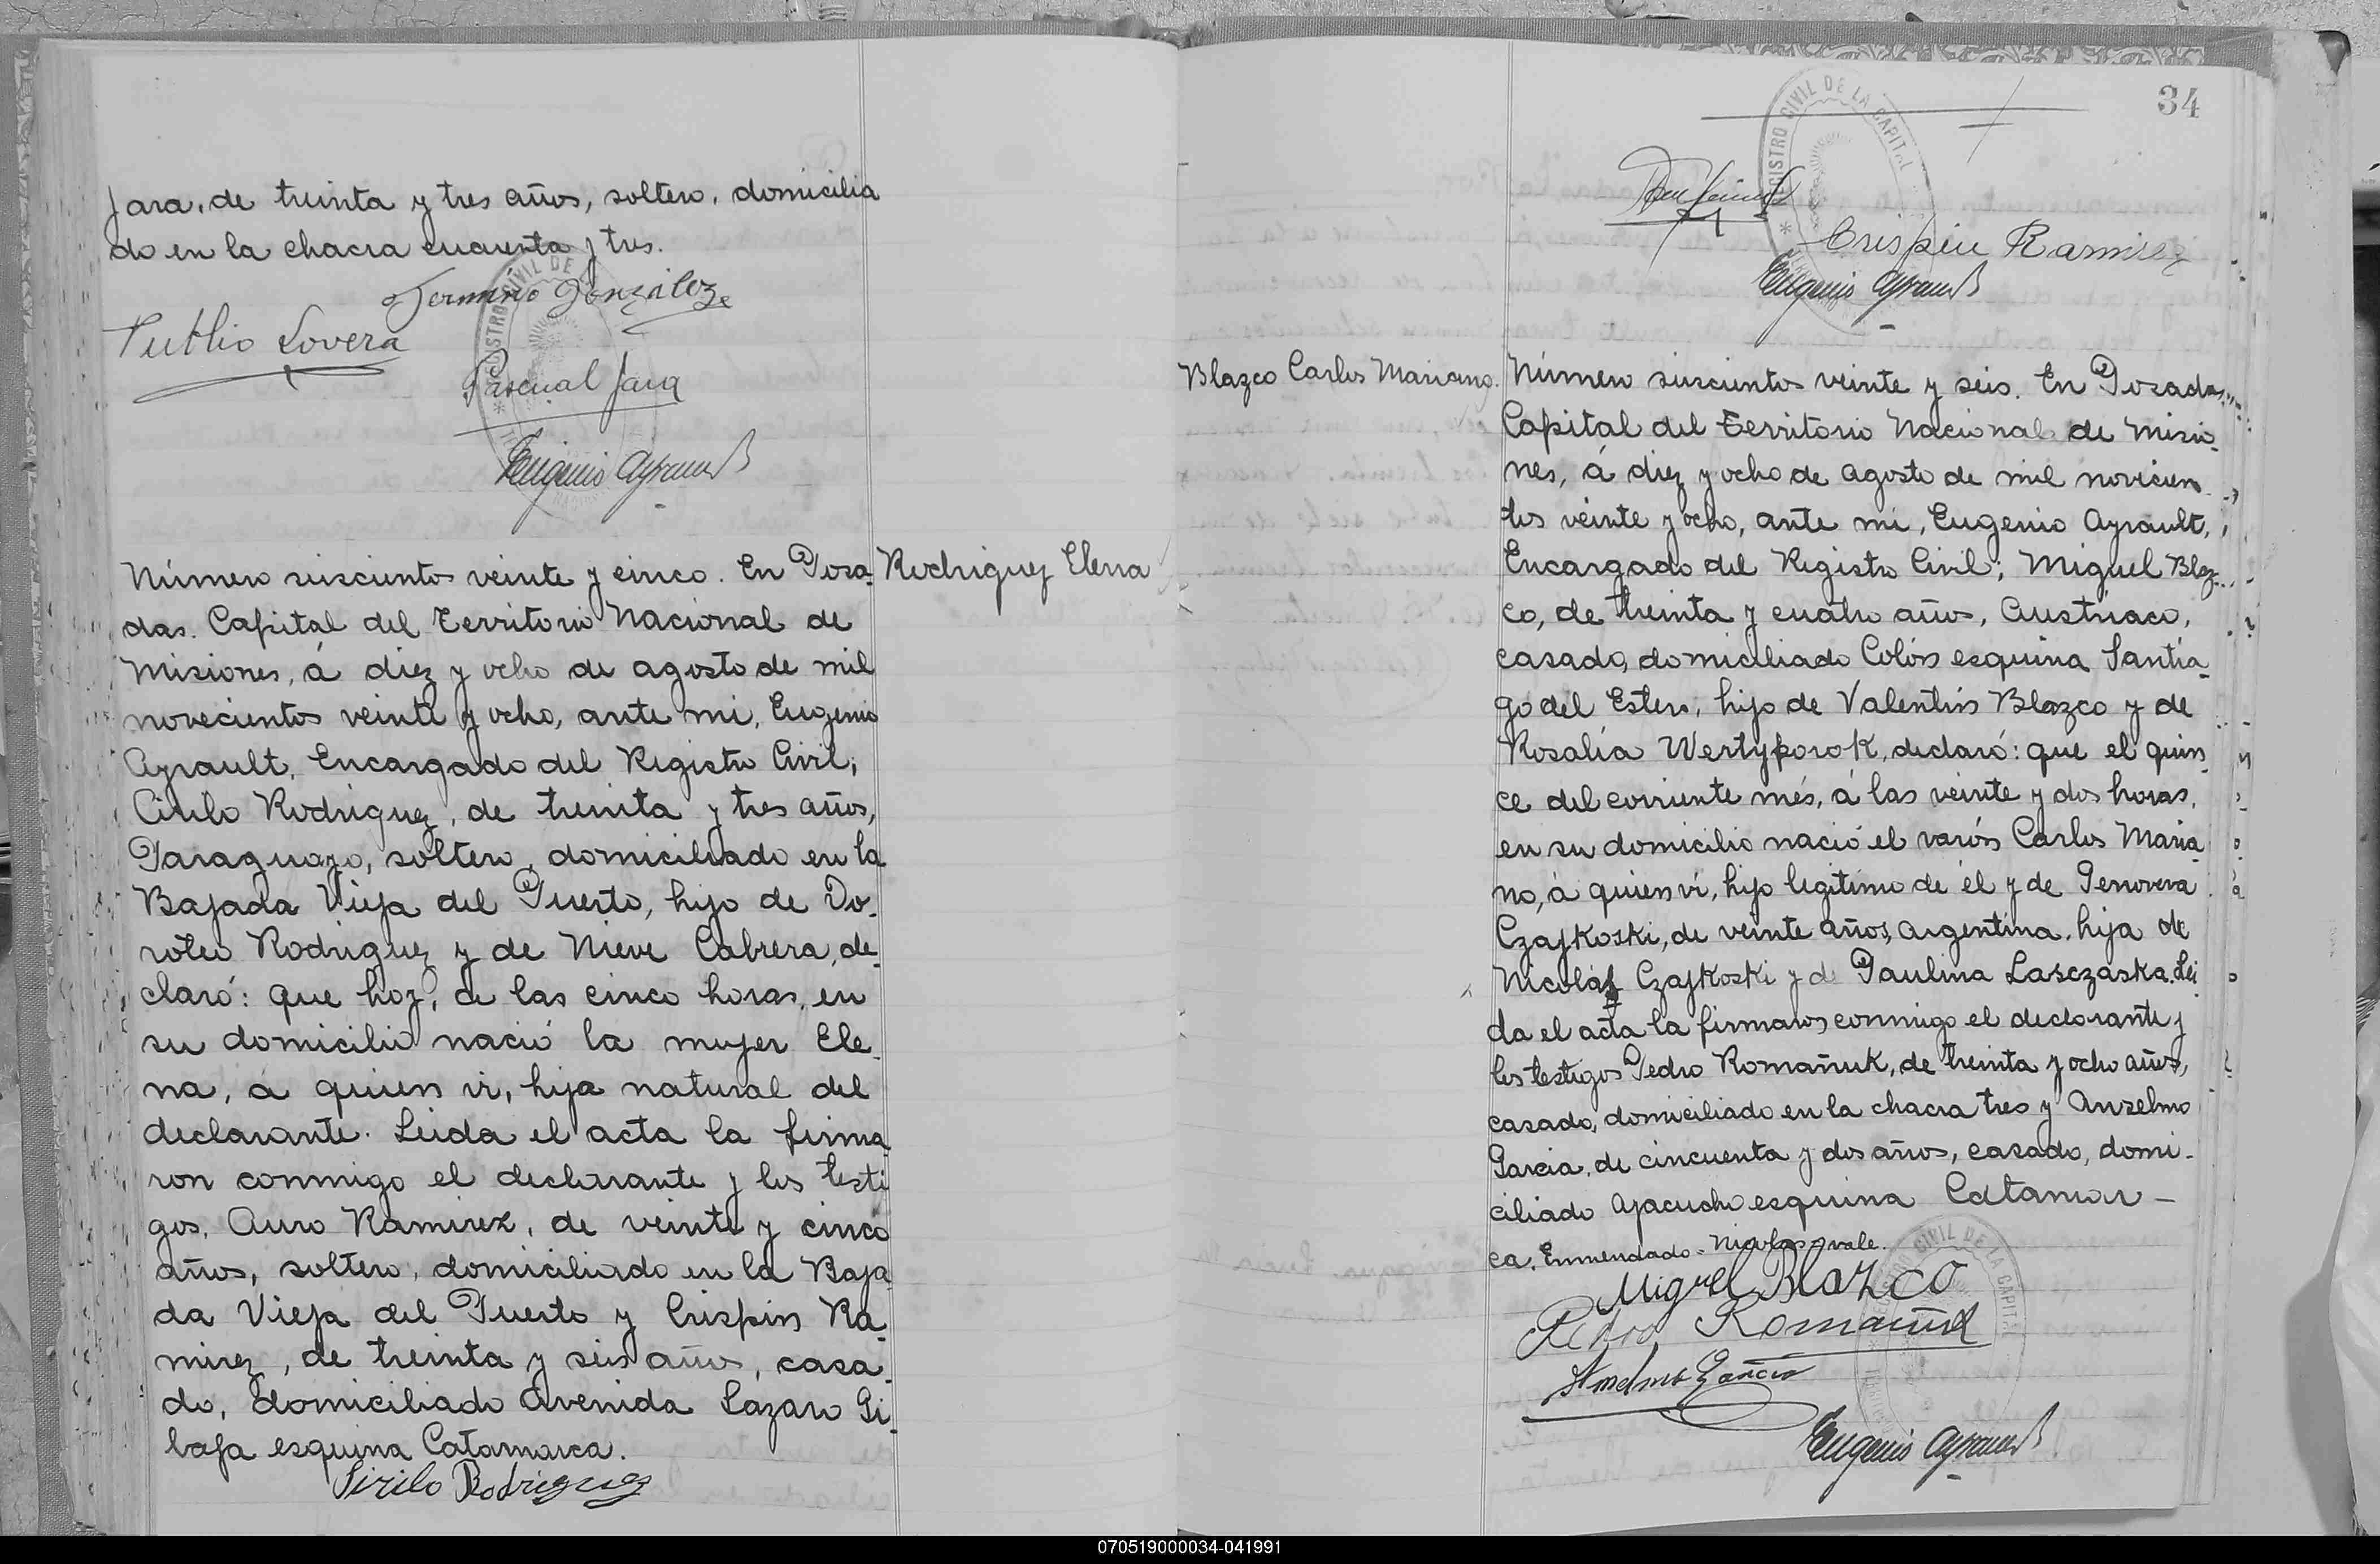 Jara, de treinta y tres años, soltero, domicilia
do en la chacra cuarenta y tres.
Publio Lovera
Pascual Jara
Eugenio Ayrault
Número seiscientos veinte y cinco. En Posa-
das. Capital del Territorio Nacional de
Misiones, á diez y ocho de agosto de mil
novecientos veinte y ocho, ante mi, Eugenio
Ayrault, Encargado del Registro Civil;
Cirilo Rodriguez, de treinta y tres años,
Paraguayo, soltero, domiciliado en la
Bajada Vieja del Puerto, hijo de Do-
roteo Rodriguez y de Nieve Cabrera, de-
claró: que hoy, á las cinco horas, en
su domicilio nació la mujer Ele-
na, á quien vi, hija natural del
declarante. Leida el acta la firma
ron conmigo el declarante y los testi
gos, Auro Ramirez, de veinte y cinco
años, soltero, domiciliado en la Baja
da Vieja del Puerto y Crispin Ra-
mirez, de treinta y seis años, casa-
do, domiciliado Avenida Lazaro Gi-
baja esquina Catamarca.
Sirilo Rodriguez
Rodriguez Elena
34
REGISTRO CIVIL DE LA CAPITAL
Crispin Ramirez
Eugenio Ayrault
Blazco Carlos Mariano.
Número seiscientos veinte y seis. En Posadas,
Capital del Territorio Nacional de Misio-
nes, á diez y ocho de agosto de mil novecien-
tos veinte y ocho, ante mi, Eugenio Ayrault,
Encargado del Registro Civil; Miguel Blaz-
co, de treinta y cuatro años, Austriaco,
casado, domiciliado Colón esquina Santia-
go del Estero, hijo de Valentin Blazco y de
Rosalía Wertyporok, declaró: que el quin-
ce del corriente més, á las veinte y dos horas,
en su domicilio nació el varón Carlos Maria-
no, á quien vi, hijo legitimo de él y de Genoveva
Czajkoski, de veinte años, argentina, hija de
Nicolás Czajkoski y de Paulina Lasczaska. Lei-
da el acta la firmaron conmigo el declarante y
los testigos Pedro Romañuk, de treinta y ocho años,
casado, domiciliado en la chacra tres y Anselmo
Garcia, de cincuenta y dos años, casado, domi-
ciliado Ayacucho esquina Catamar-
ca. Enmendado - Nicolas - vale.
Miguel Blazco
Pedro Romañuk
Anselmo Garcia
Eugenio Ayrault
070519000034-041991